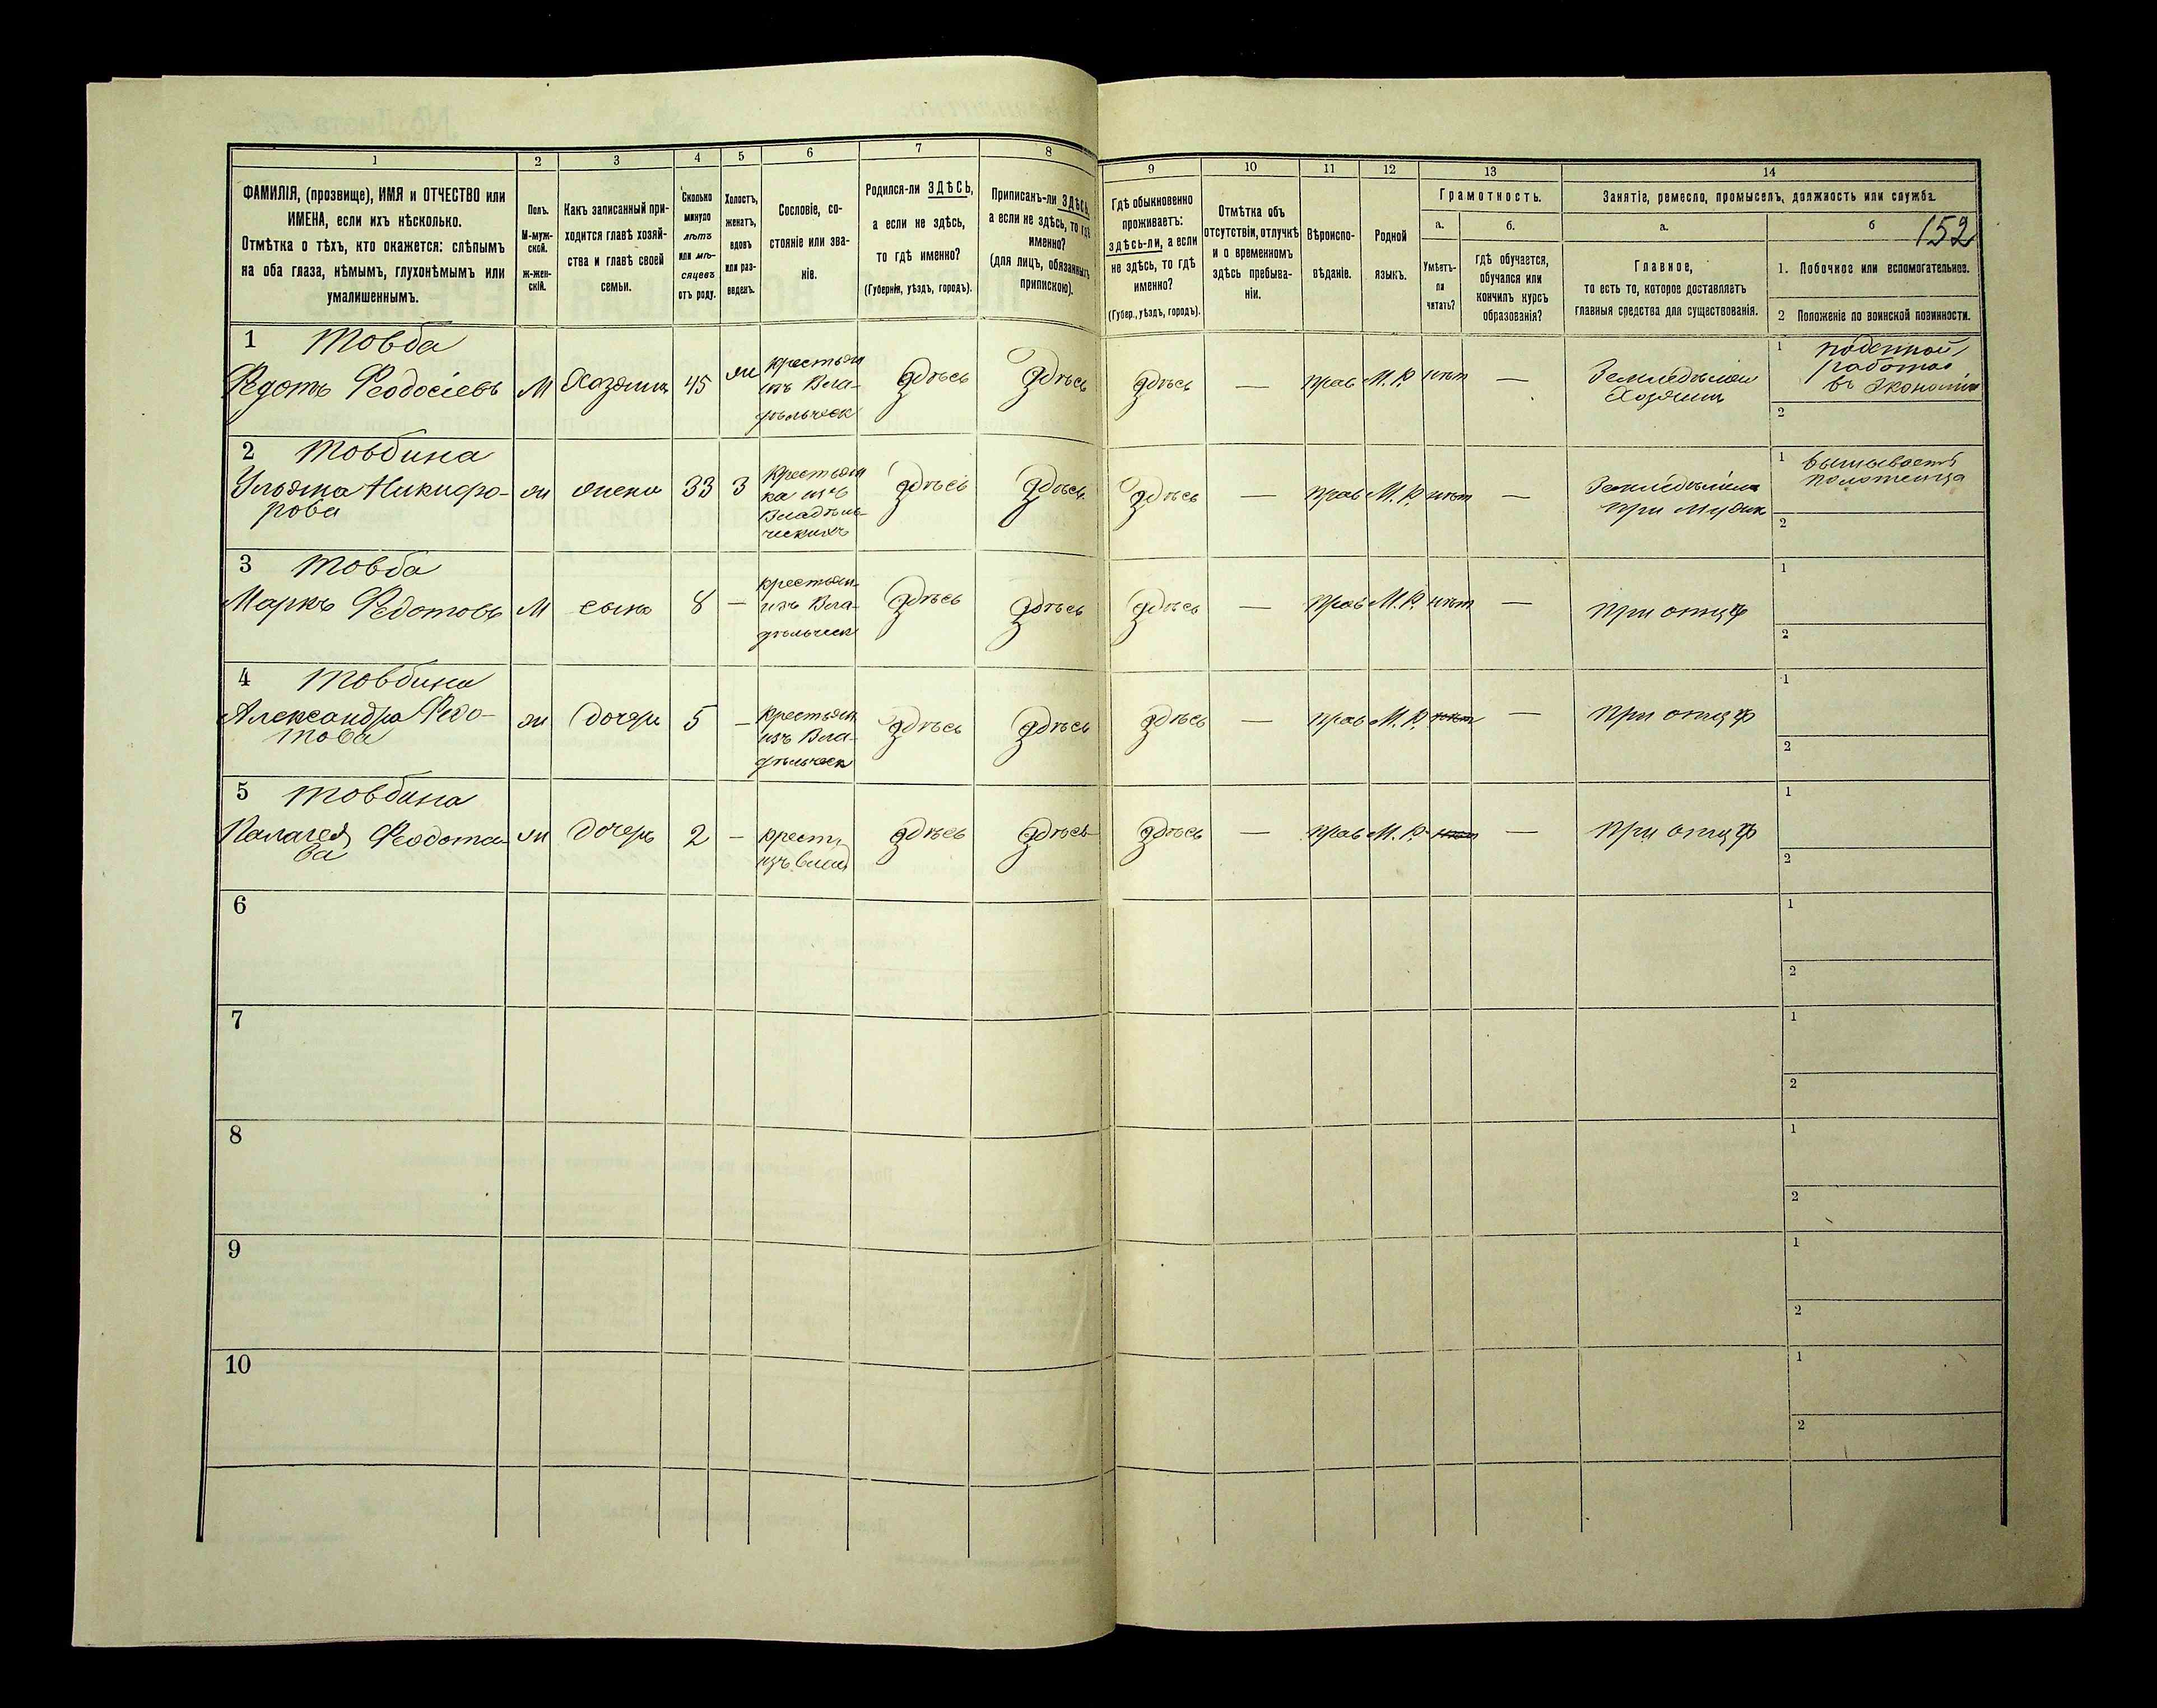 1 2 3 4 5 6 7 8 9 10 11 12 13 14
ФАМИЛІЯ, (прозвище), ИМЯ и ОТЧЕСТВО или
ИМЕНА, если ихъ нѣсколько.
Отмѣтка о тѣхъ, кто окажется: слѣпымъ
на оба глаза, нѣмымъ, глухонѣмымъ или
умалишеннымъ.
Полъ.
М-муж-
ской.
ж-жен-
скій.
Какъ записанный при-
ходится главѣ хозяй-
ства и главѣ своей
семьи.
Сколько
минуло
лѣтъ
или мѣ-
сяцевъ
отъ роду.
Холостъ,
женатъ,
вдовъ
или раз-
веденъ.
Сословіе, со-
стояніе или зва-
ніе.
Родился-ли ЗДѢСЬ,
а если не здѣсь,
то гдѣ именно?
(Губернія, уѣздъ, городъ).
Приписанъ-ли ЗДѢСЬ,
а если не здѣсь, то гдѣ
именно?
(для лицъ, обязанныхъ
припискою).
Гдѣ обыкновенно
проживаетъ:
здѣсь-ли, а если
не здѣсь, то гдѣ
именно?
(Губер., уѣздъ, городъ).
Отмѣтка объ
отсутствіи, отлучкѣ
и о временномъ
здѣсь пребыва-
ніи.
Вѣроиспо-
вѣданіе.
Родной
языкъ.
Грамотность.
а.
Умѣетъ-
ли
читать?
б.
гдѣ обучается,
обучался или
кончилъ курсъ
образованія?
Занятіе, ремесло, промыселъ, должность или служба.
а.
Главное,
то есть то, которое доставляетъ
главныя средства для существованія.
б
152
1. Побочное или вспомогательное.
2 Положеніе по воинской повинности.
1 Товба
Федотъ Феодосіевъ М Хозяинъ 45 ж
крестьян
изъ Вла-
дѣльческ
здѣсь здѣсь здѣсь — прав М.Р. нѣт —
Хозяинъ
1 поденной
работой
въ экономіи
2
2 Товбина
Ульяна Никифо-
рова
ж жена 33 З
Крестьян
ка изъ
Владѣль-
ческихъ
здѣсь здѣсь здѣсь — прав М.Р. нѣт —
1 вышиваетъ
полотенца
2
3 Товба
Маркъ Федотовъ М сынъ 8 —
крестьян-
изъ Вла-
дѣльческ
здѣсь здѣсь здѣсь — прав М.Р. нѣт — при отцѣ
1
2
4 Товбина
Александра Федо-
това
ж дочерь 5 —
крестьян
изъ Вла-
дѣльческ
здѣсь здѣсь здѣсь — прав М.Р. нѣт — при отцѣ
1
2
5 Товбина
Палагея Феодото-
ва
ж дочерь 2 —
крест
изъ влад
здѣсь здѣсь здѣсь — прав М.Р. нѣт — при отцѣ
1
2
6 1
2
7 1
2
8 1
2
9 1
2
10 1
2